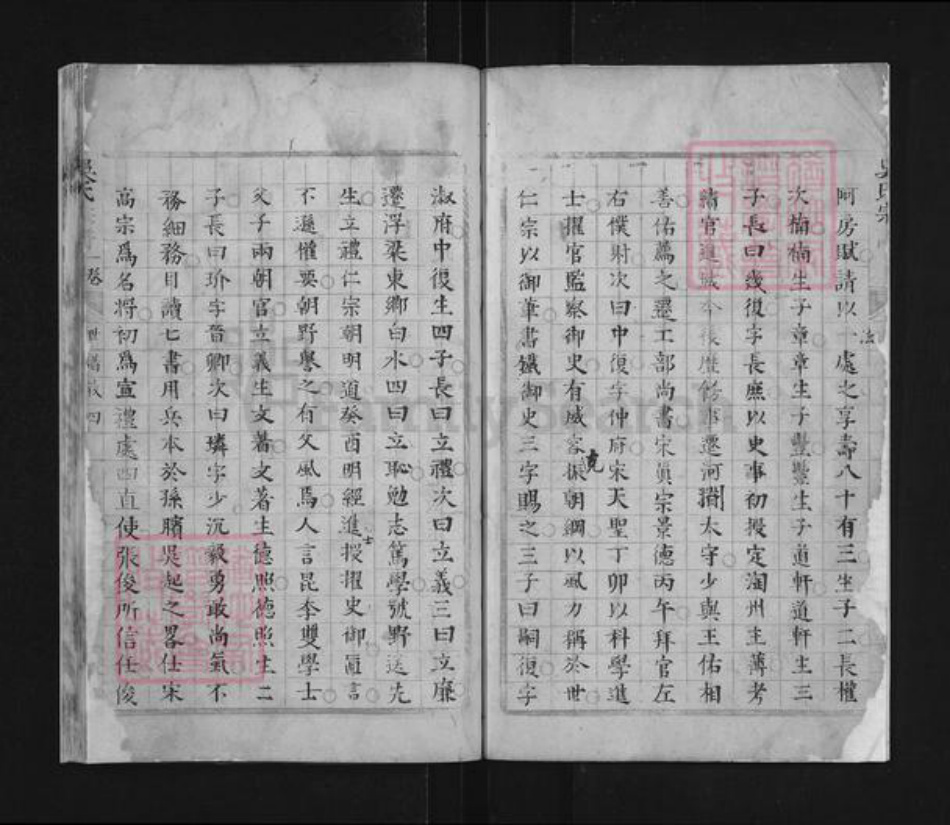 阿房賦請以一處之享壽八十有三生子二長權
次楠楠生子章章生子豐豐生子道軒道軒生三
子長曰幾復字長庶以史事初授定淘州主薄考
績官進城令後歷餘事遷河潤太守少與王佑相
善佑薦之遷工部尚書宋真宗景德丙午拜官左
右僕射次曰中復字仲府宋天聖丁卯以科學進
士擢官監察御史有威容振朝綱以風力稱於世
克
仁宗以御筆書鐵御史三字賜之三子曰嗣復字
淑府中復生四子長曰立禮次曰立義三曰立廉
遷浮梁東鄉白水四曰立恥勉志篤學號野送先
生立禮仁宗朝明道癸酉明經進士授擢史御而言
不遜懼要朝野譽之有父風焉人言昆李雙學士
父子兩朝官立義生文著文著生德照德照生二
子長曰玠字晉卿次曰璘字少沉毅勇敢尚氣不
務細務目讀七書用兵本於孫臏吳起之畧仕宋
高宗爲名將初爲宣禮處四直使張俊所信任俊
吳氏
一卷
世
四